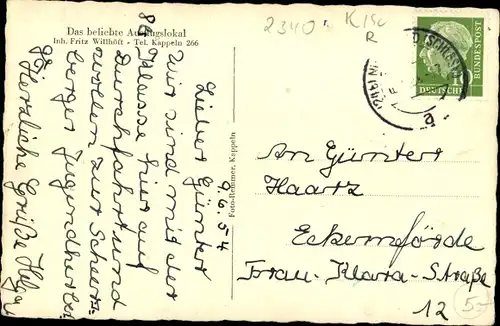 Das beliebte Ausflugslokal
Inh. Fritz Willhöft - Tel. Kappeln 266
2340
K/Sc
R
9.6.54
Lieber Günter
Wir sind mit der
8a Klasse hier auf
Durchfahrt und
wollen zur Scheers-
berger Jugendherb.
Herzliche Grüße Helga
Foto-Remmer, Kappeln
DEUTSCHE BUNDESPOST
An Günter
Haartz
Eckernförde
Frau-Klara-Straße
12
5,-